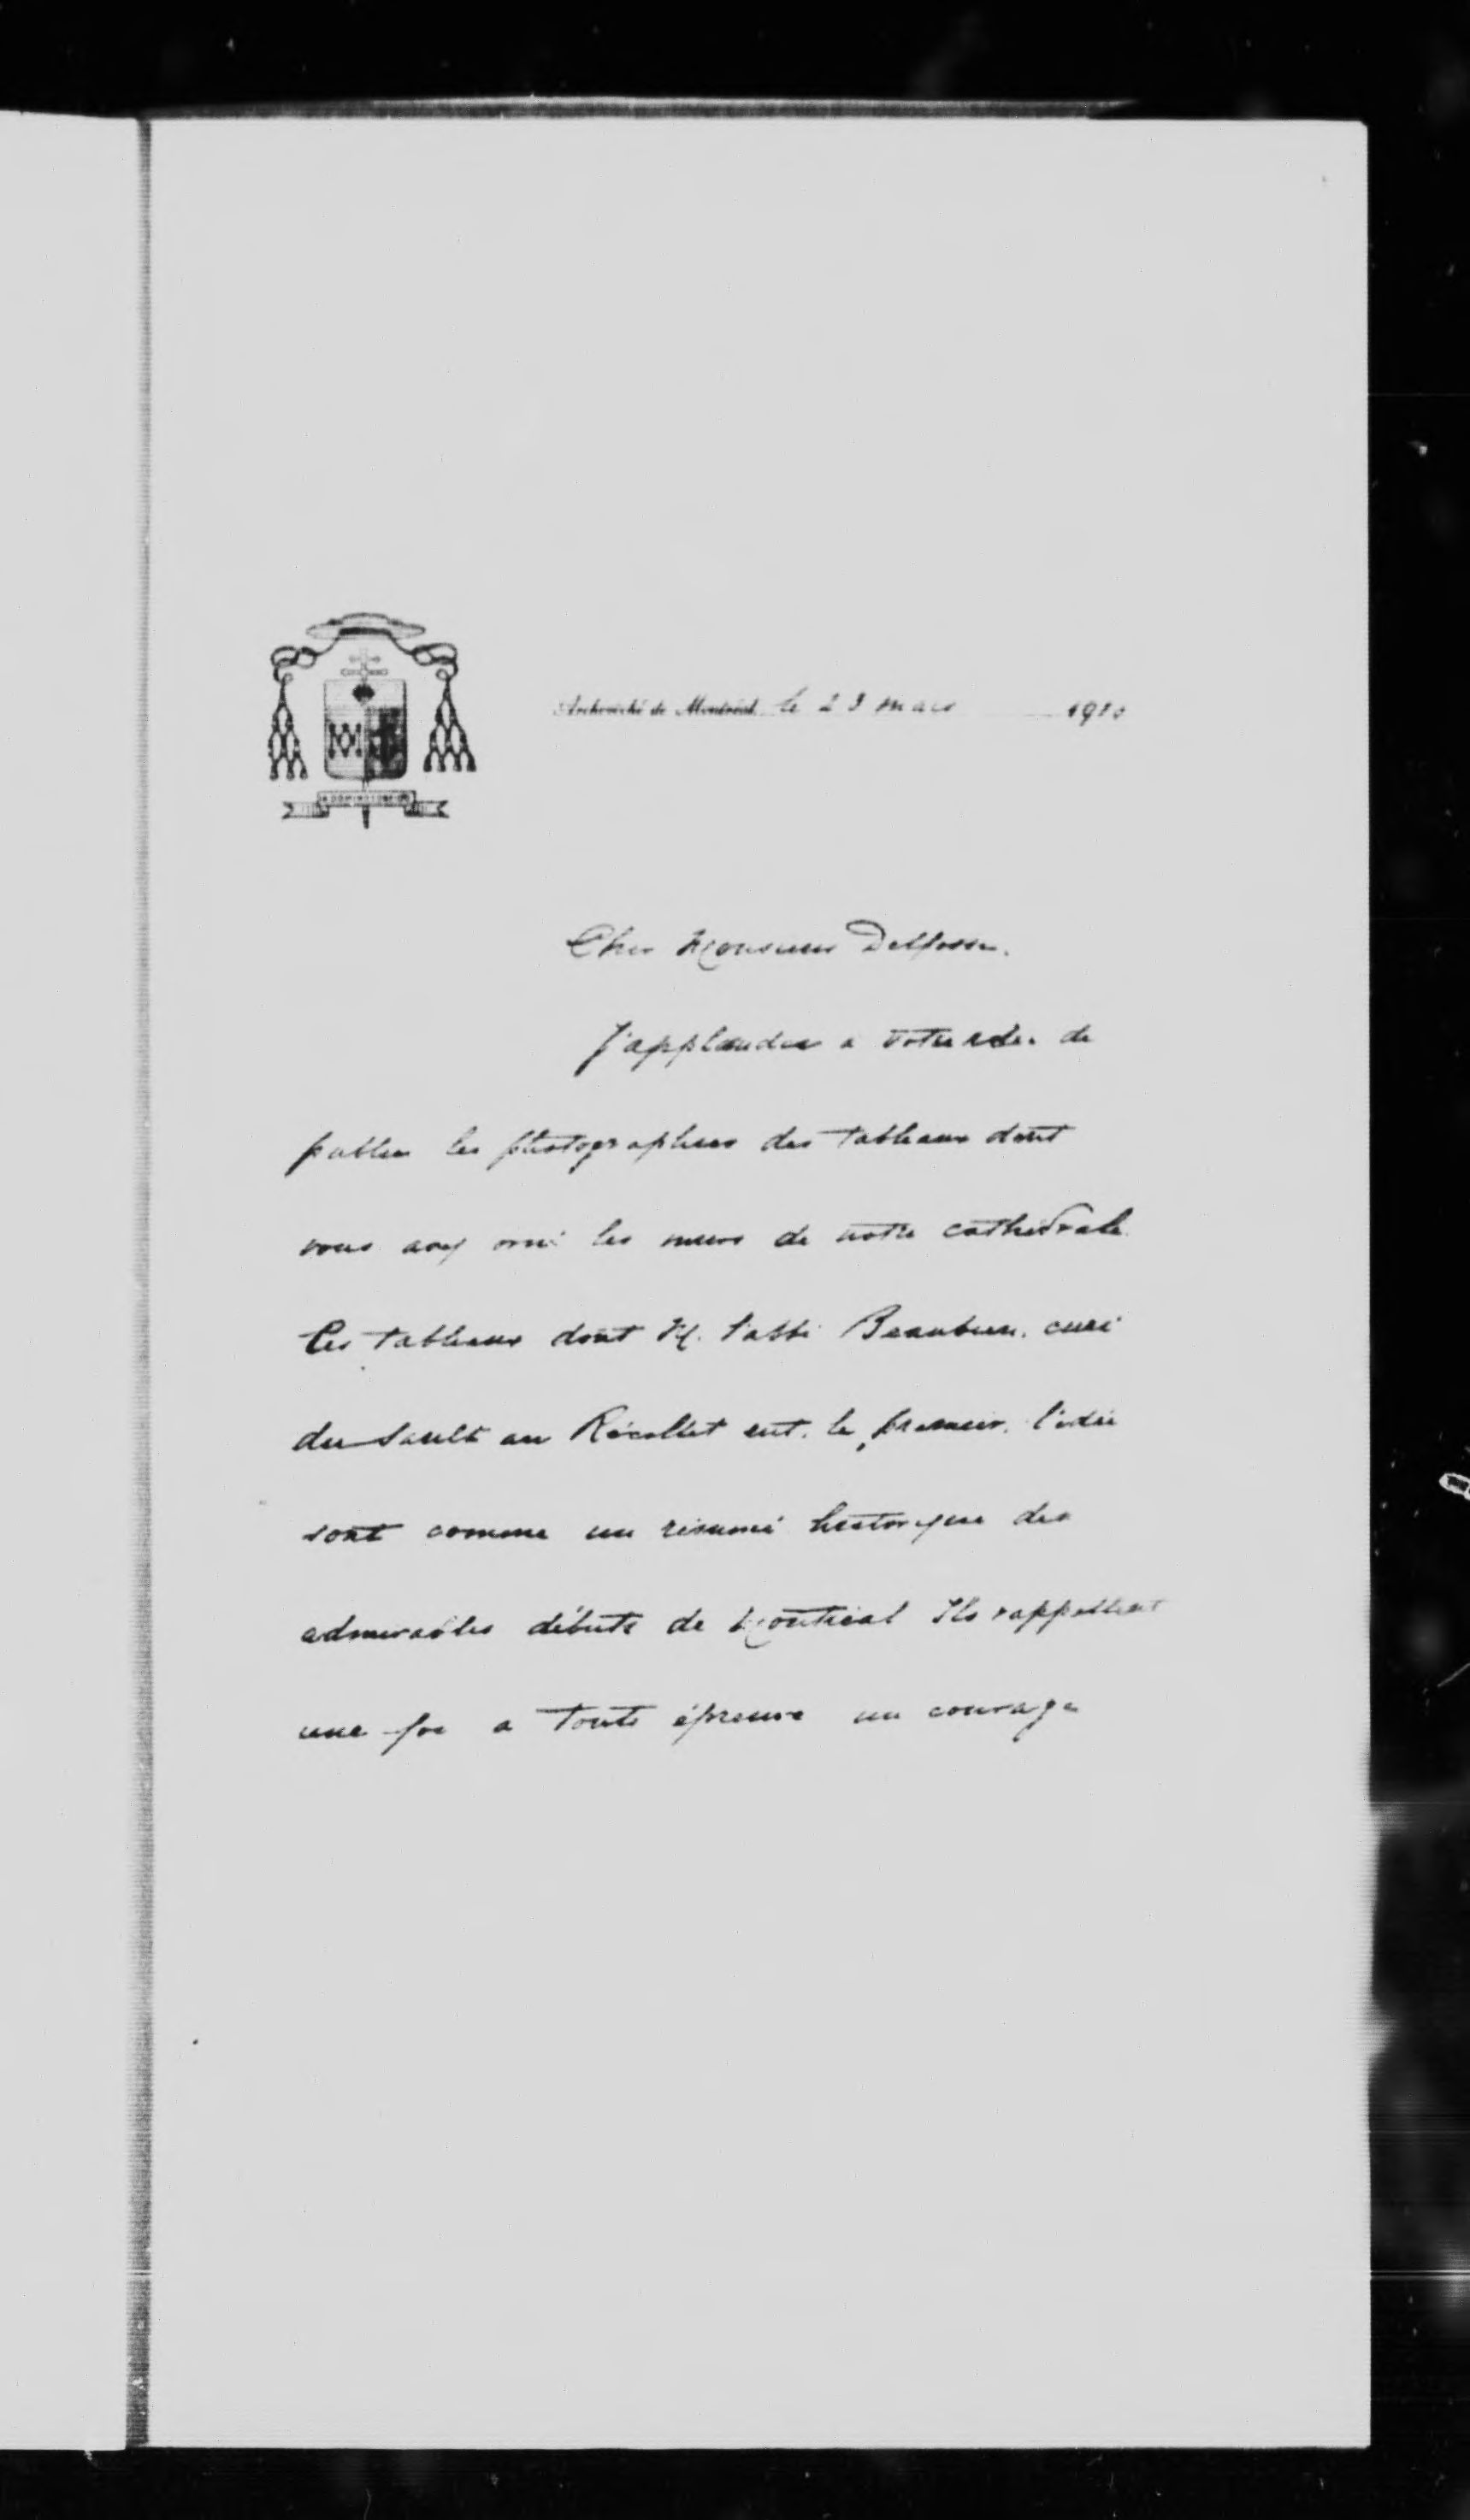 Archevêché de Montréal, le 23 mars 1910
Cher Monsieur Delfosse.
J'applaudis à votre idée de
publier les photographies des tableaux dont
vous avez orné les murs de notre cathédrale
Ces tableaux dont M. l'abbé Beaubien, curé
du Sault au Récollet eut, le premier, l'idée
sont comme un résumé historique des
admirables débuts de Montréal Ils rappellent
une foi à toute épreuve un courage